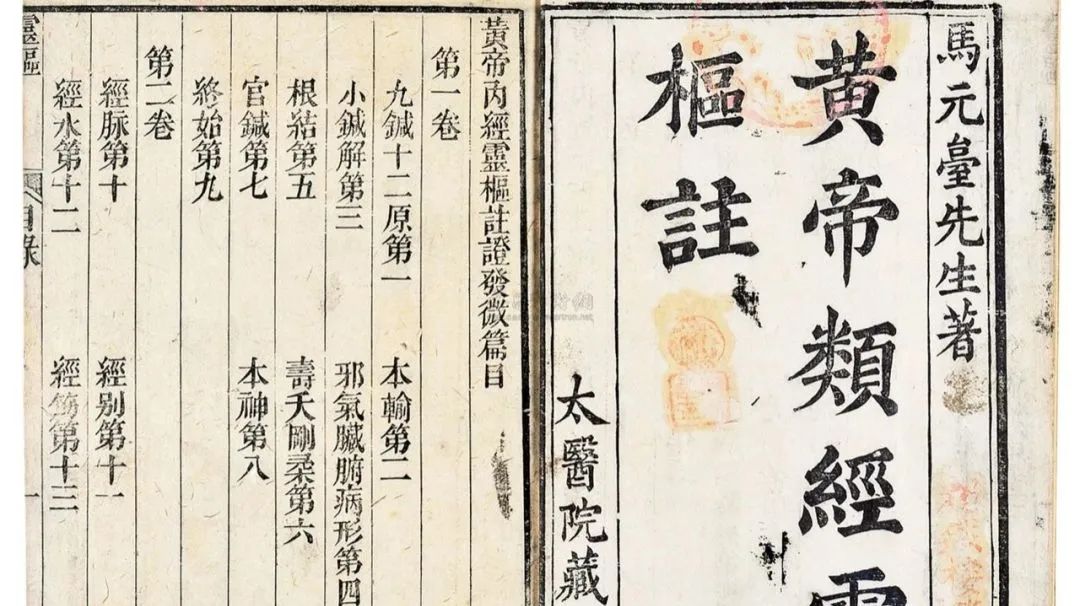 馬元臺先生著
黃帝類經靈
樞註
太醫院藏
黃帝內經靈樞註證發微篇目
第一卷
九鍼十二原第一 本輸第二
小鍼解第三 邪氣臟腑病形第四
根結第五 壽夭剛柔第六
官鍼第七 本神第八
終始第九
第二卷
經脉第十 經别第十一
經水第十二 經筋第十三
靈樞 目錄 一